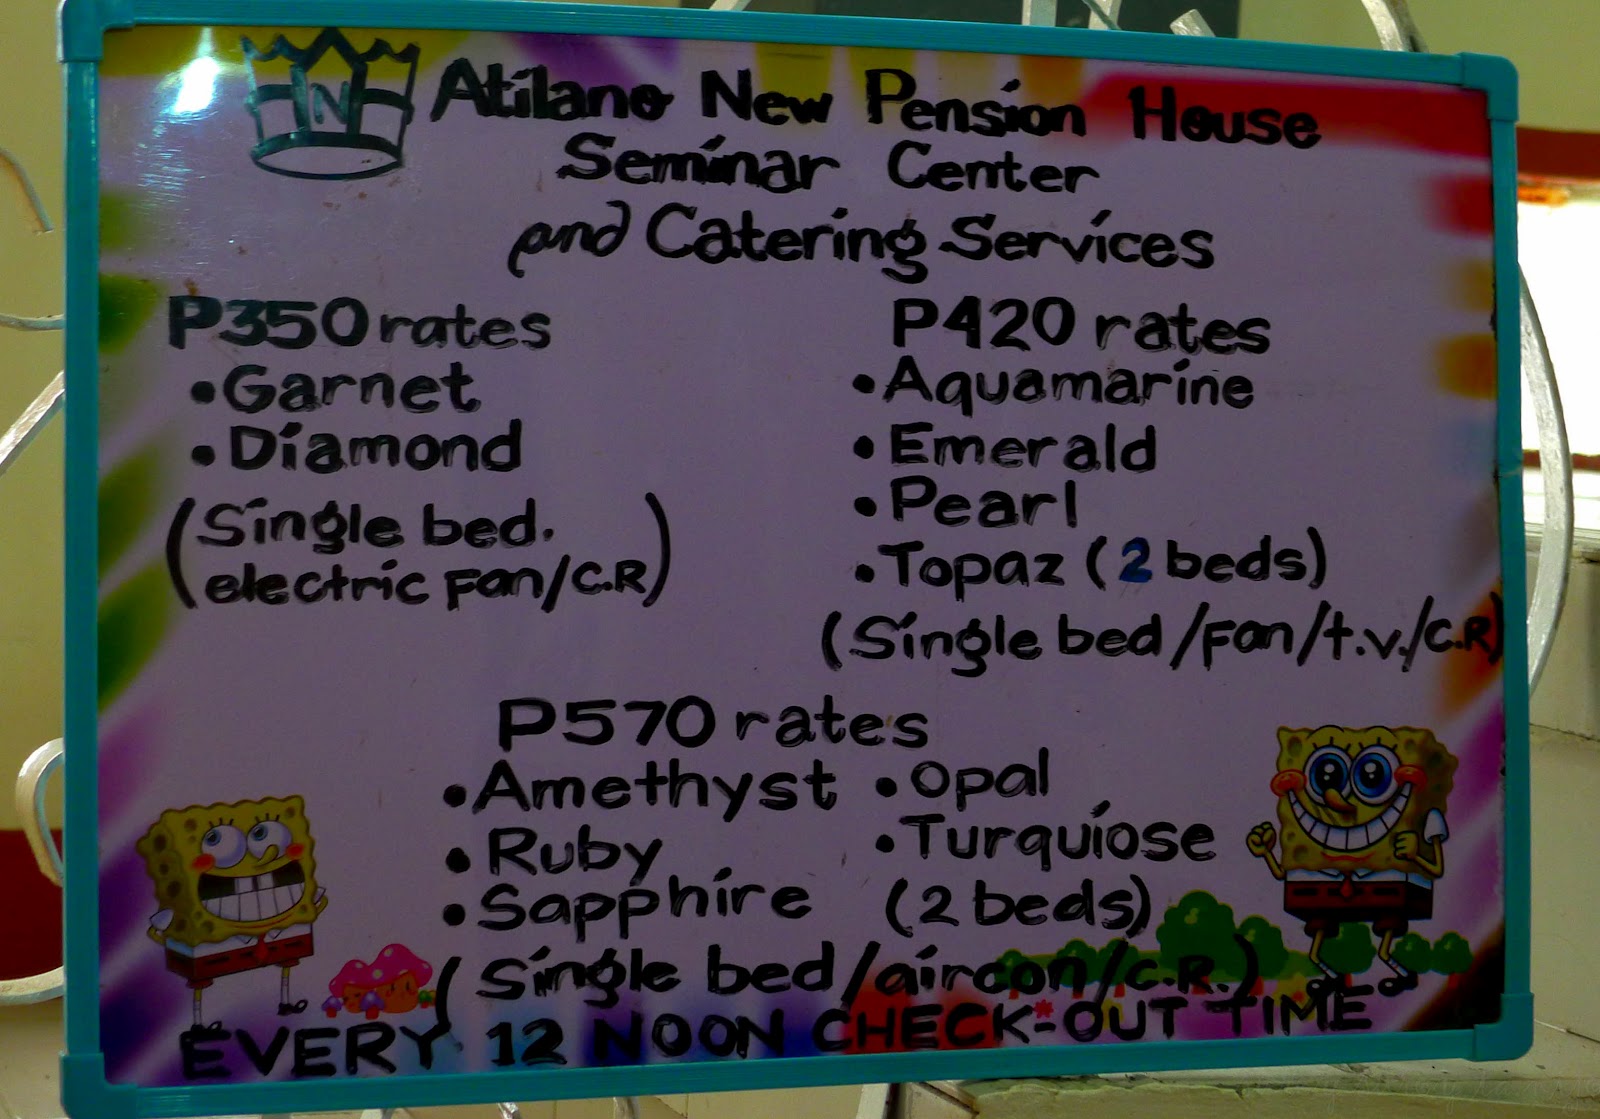 N
Atilano New Pension House
Seminar Center
and Catering Services
P350 rates
• Garnet
• Diamond
(Single bed.
electric Fan/C.R)
P420 rates
• Aquamarine
• Emerald
• Pearl
• Topaz (2 beds)
(Single bed/Fan/t.v./C.R)
P570 rates
• Amethyst
• Ruby
• Sapphire
• Opal
• Turquiose
(2 beds)
(Single bed/aircon/C.R.)
EVERY 12 NOON CHECK-OUT TIME